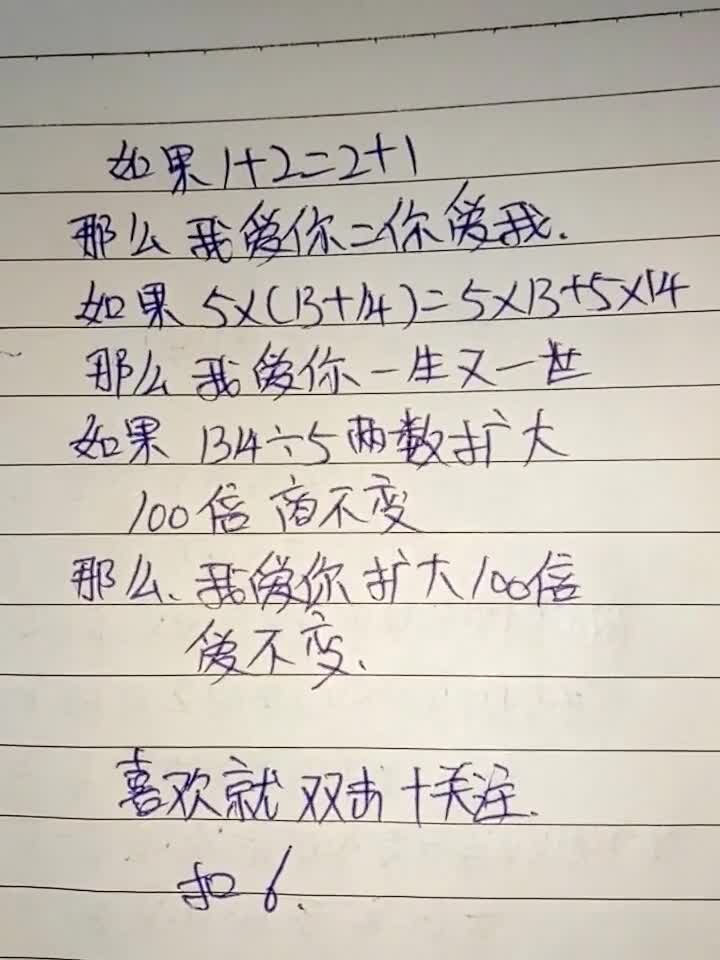 如果1+2=2+1
那么我爱你=你爱我.
如果5×(13+14)=5×13+5×14
那么我爱你一生又一世
如果134÷5两数扩大
100倍商不变
那么、我爱你扩大100倍
爱不变.
喜欢就双击+关注.
扣6.